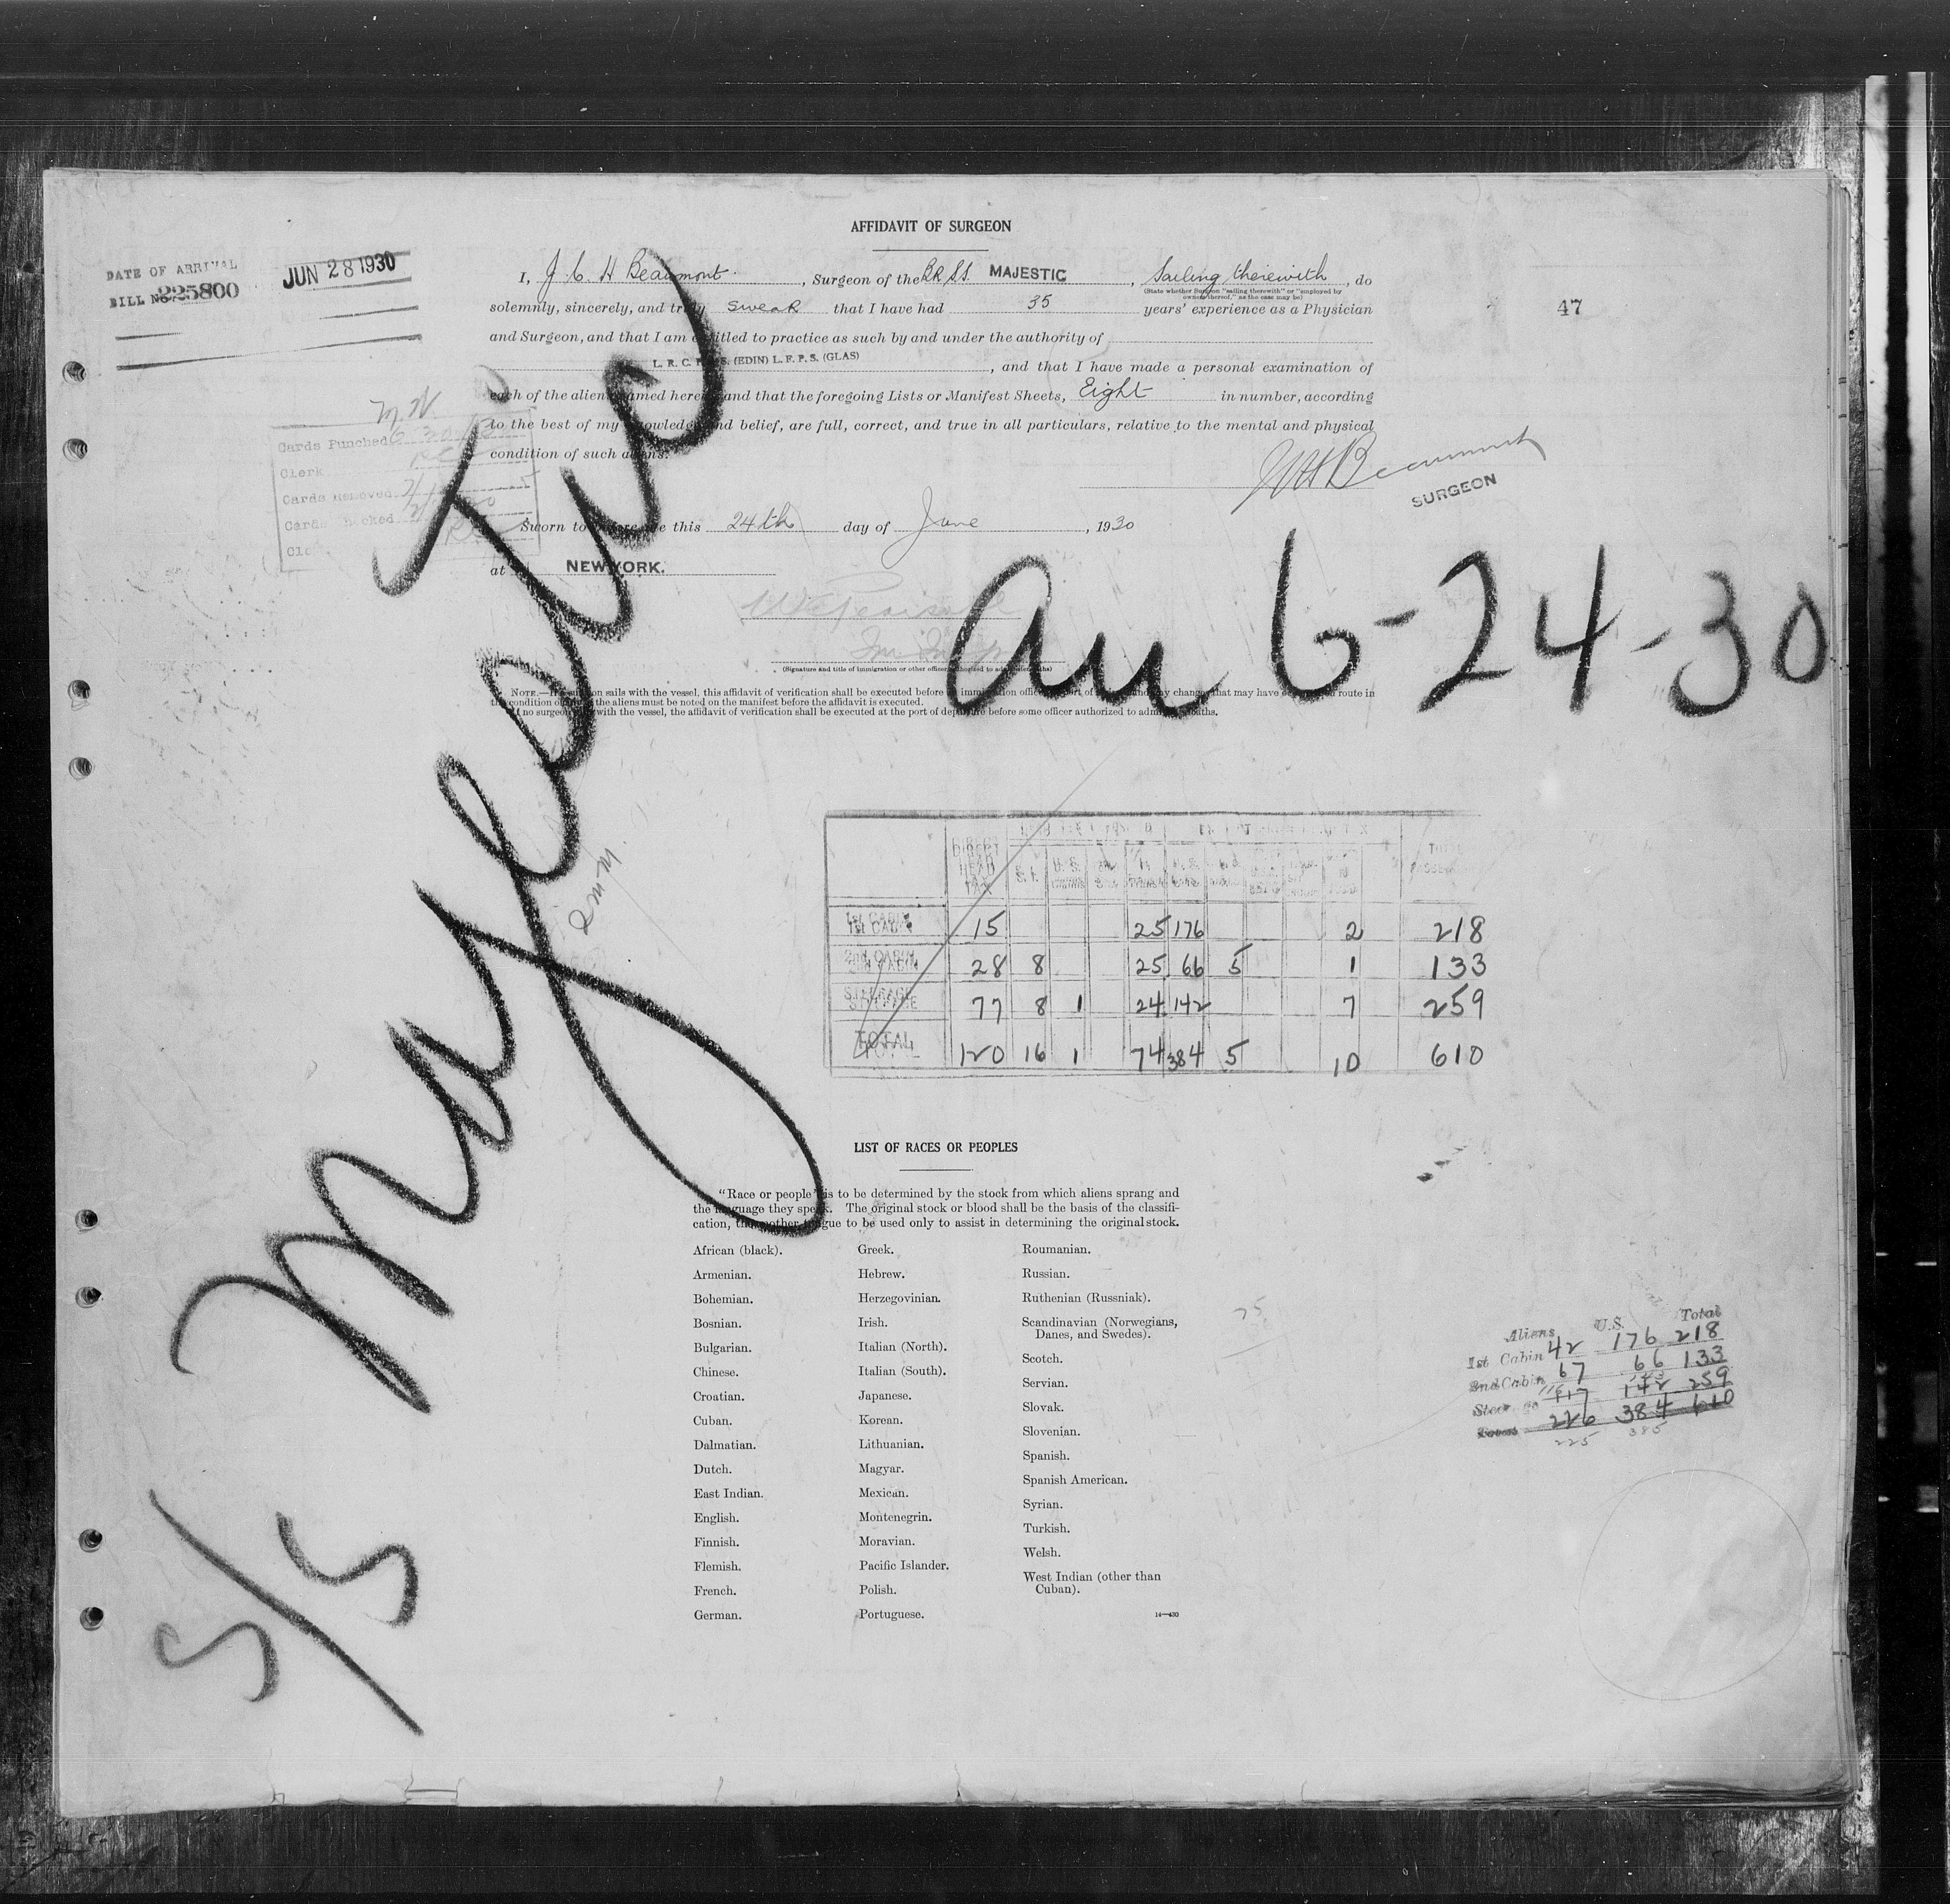 AFFIDAVIT OF SURGEON
DATE OF ARRIVAL JUN 28 1930
BILL No. 225800
47
I, J. C. H Beaumont., Surgeon of the BR SS. MAJESTIC, Sailing therewith, do
(State whether Surgeon "sailing therewith" or "employed by
owners thereof," as the case may be)
solemnly, sincerely, and truly swear that I have had 35 years' experience as a Physician
and Surgeon, and that I am entitled to practice as such by and under the authority of
(EDIN) L. F. P. S. (GLAS), and that I have made a personal examination of
each of the aliens named herein and that the foregoing Lists or Manifest Sheets, Eight in number, according
to the best of my knowledge and belief, are full, correct, and true in all particulars, relative to the mental and physical
condition of such aliens.
JCHBeaumont
SURGEON
Cards Punched
Clerk
Cards Removed
Cards
Sworn to before me this 24th day of June, 1930
at NEW YORK.
(Signature and title of immigration or other officer authorized to administer oaths)
NOTE.—If surgeon sails with the vessel, this affidavit of verification shall be executed before immigration officer port of and any change that may have route in
the condition of the aliens must be noted on the manifest before the affidavit is executed.
If no surgeon with the vessel, the affidavit of verification shall be executed at the port of departure before some officer authorized to administer oaths.
S/S Majestic
6-24-30
DIRECT HEAD TAX S.I. U.S. TOTAL
1st CABIN 15 25 176 2 218
2nd CABIN 28 8 25 66 5 1 133
STEERAGE 77 8 1 24 142 7 259
TOTAL 120 16 1 74 384 5 10 610
LIST OF RACES OR PEOPLES
"Race or people" is to be determined by the stock from which aliens sprang and
the language they speak. The original stock or blood shall be the basis of the classifi-
cation, the mother tongue to be used only to assist in determining the original stock.
African (black).
Armenian.
Bohemian.
Bosnian.
Bulgarian.
Chinese.
Croatian.
Cuban.
Dalmatian.
Dutch.
East Indian.
English.
Finnish.
Flemish.
French.
German.
Greek.
Hebrew.
Herzegovinian.
Irish.
Italian (North).
Italian (South).
Japanese.
Korean.
Lithuanian.
Magyar.
Mexican.
Montenegrin.
Moravian.
Pacific Islander.
Polish.
Portuguese.
Roumanian.
Russian.
Ruthenian (Russniak).
Scandinavian (Norwegians,
Danes, and Swedes).
Scotch.
Servian.
Slovak.
Slovenian.
Spanish.
Spanish American.
Syrian.
Turkish.
Welsh.
West Indian (other than
Cuban).
14—430
75
Aliens U.S. Total
1st Cabin 42 176 218
2nd Cabin 67 66 133
117 142 259
226 384 610
225 385